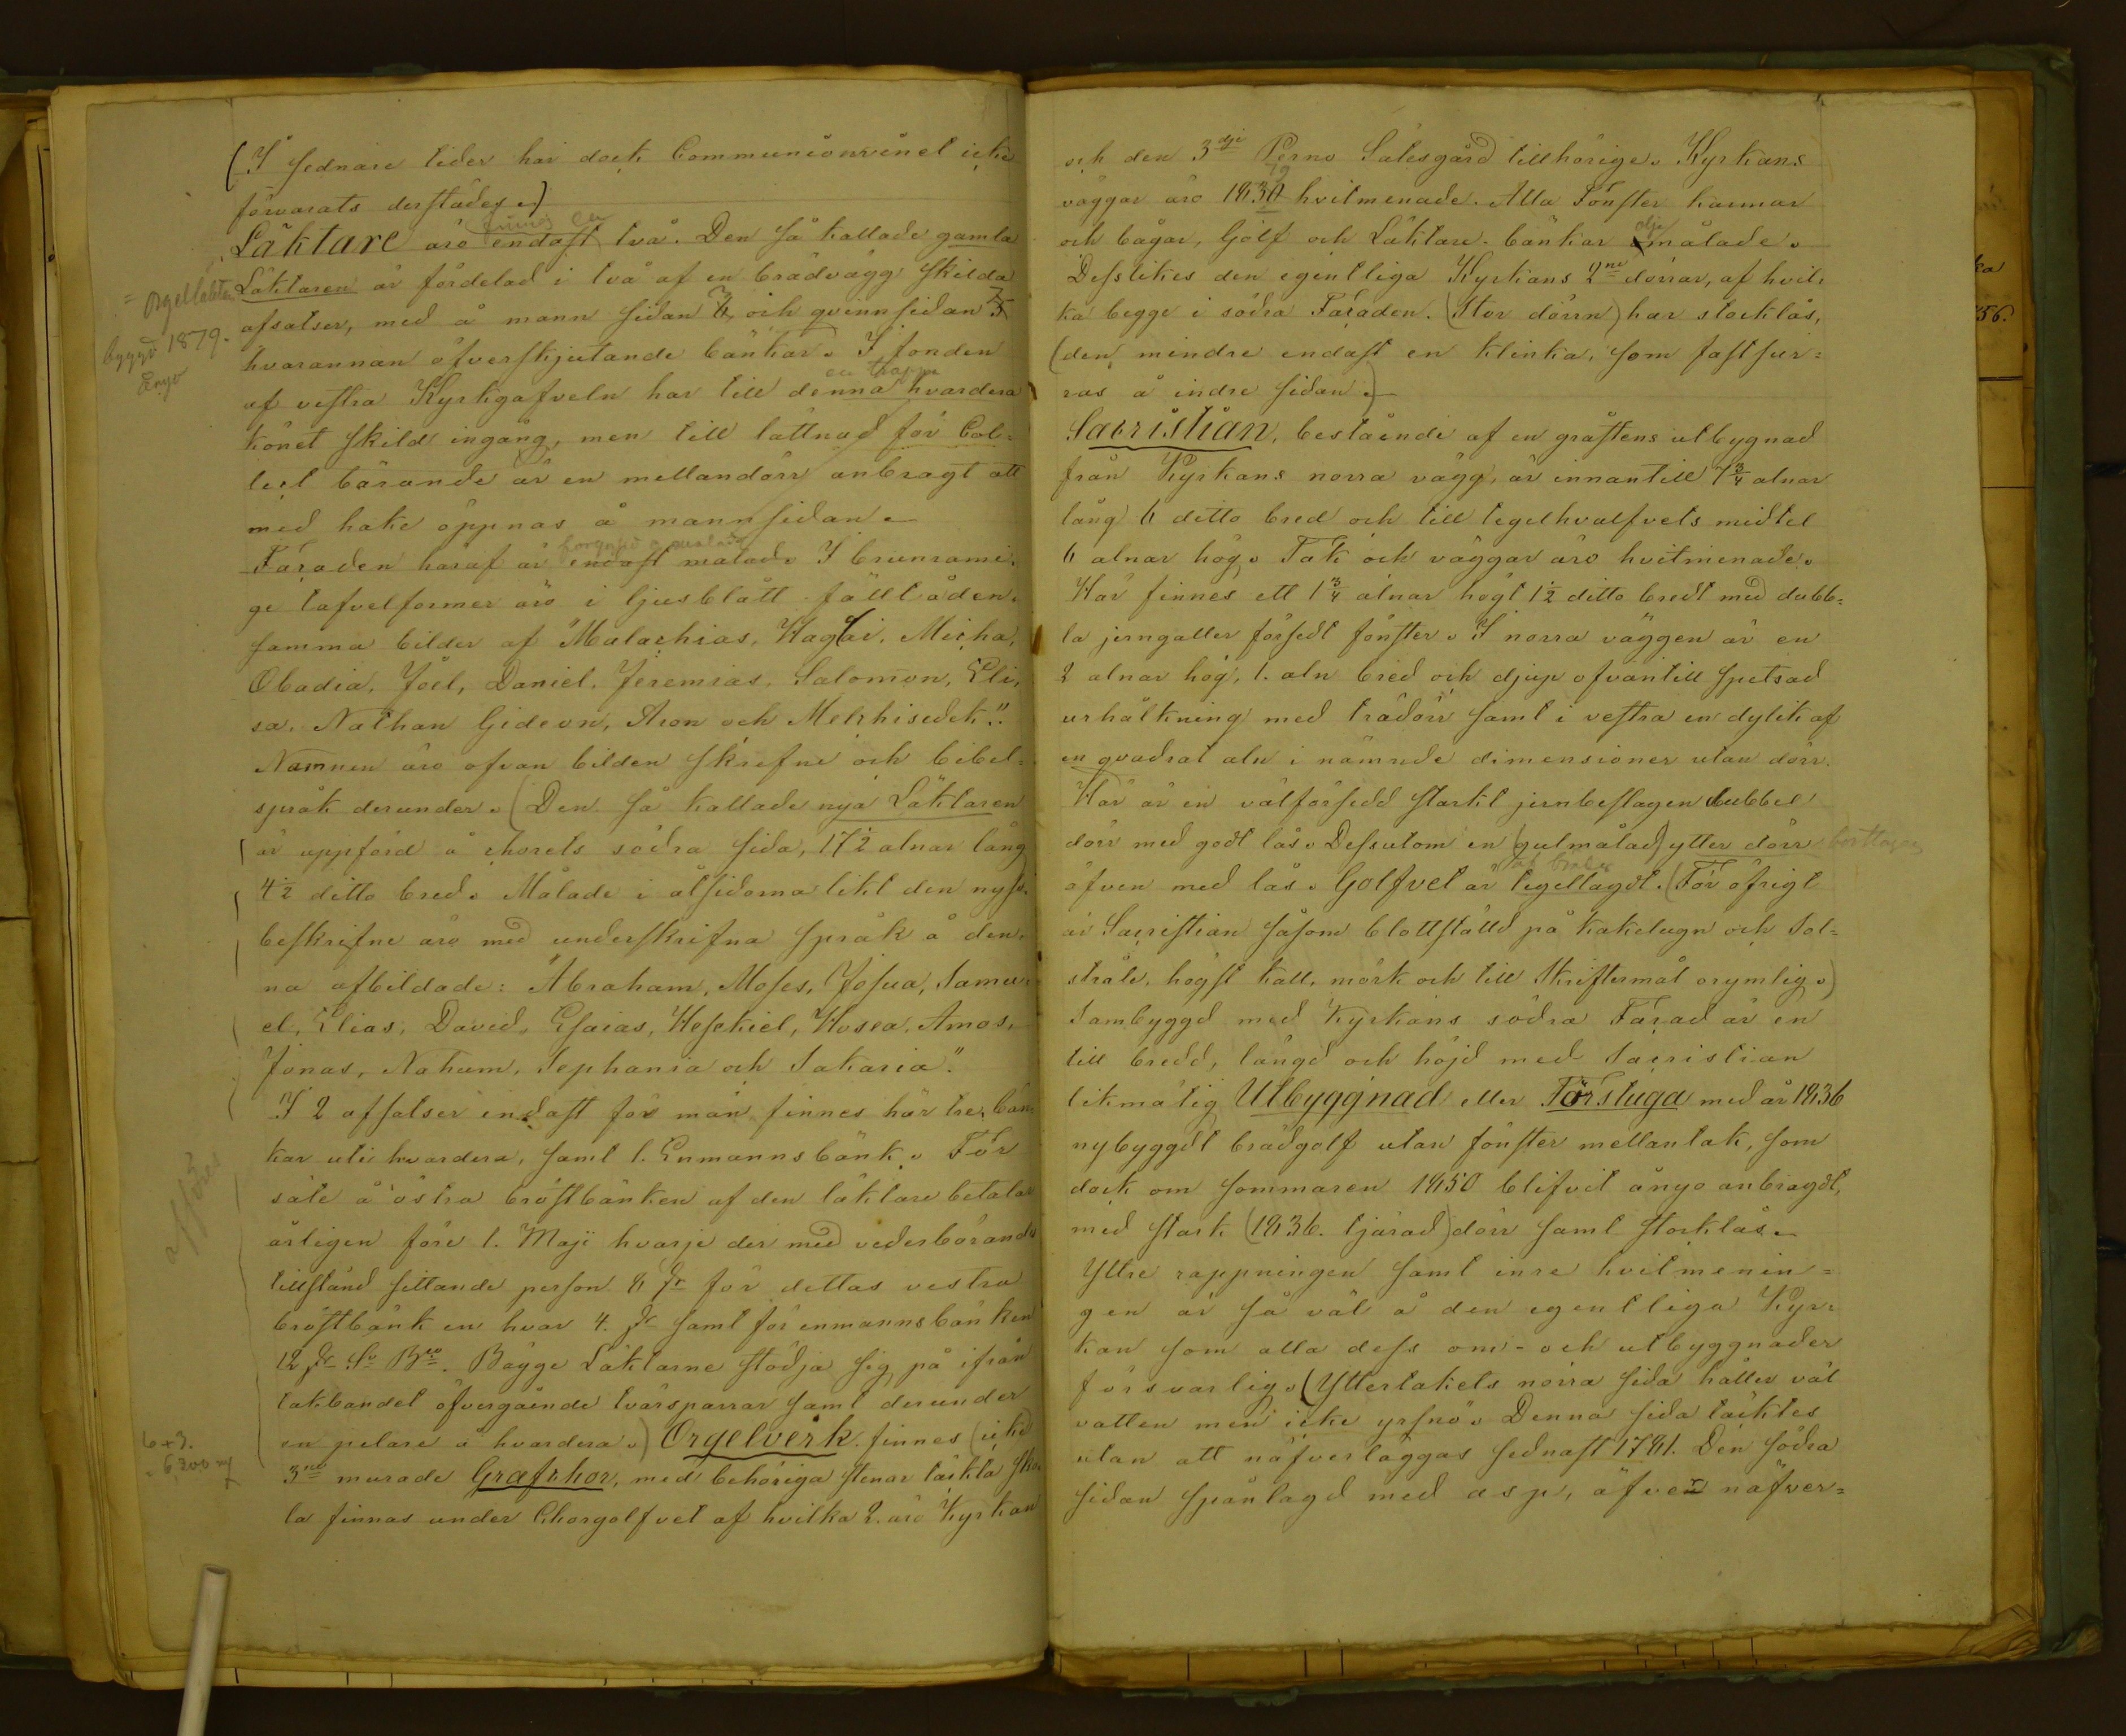 (I sednare tider har dock Communionvinet icke
förvarats derstädes.)
finnes en
Läktare äro endast två. Den så kallade gamla
Läktaren är fördelad i två af en brädvägg skilda
= orgelläkta
byggd 1879.
Enyo
afsatser, med å mann sidan 6, och qvinn sidan 5
hvarannan öfverskjutande bänkar. I fonden
en trappa
af vestra Kyrkgafveln har till denna hvardera
könet skild ingång, men till lättnad för Col-
lect bärande är en mellandörr anbragt att
med hake öppnas å mannsidan.
Façaden häraf är endast målad. I brunrami-
ge tafvelformer äro i ljusblått fält åden-
samma bilder af "Malachias, Haggai, Micha,
Obadia, Joel, Daniel, Jeremias, Salomon, Eli-
sa, Nathan Gideon, Aron och Melchisedek".
Namnen äro ofvan bilden skrefne och bibel-
språk derunder. (Den så kallade nya Läktaren
är uppförd å chorets södra sida, 17½ alnar lång
4½ ditto bred. Målade i åtsidorna likt den nyss-
beskrifne äro med underskrifna språk å den-
na afbildade: "Abraham, Moses, Josua, Samu-
el, Elias, David, Esaias, Hesekiel, Hosea, Amos,
Jonas, Nahum, Sephania och Sakaria".
I 2 afsatser endast för män finnes här tre bän-
kar uti hvardera, samt 1. Enmannsbänk. För
säte å östra bröstbänken af den läktare betalar
afföres
årligen före 1. Maji hvarje der med vederbörandes
tillstånd sittande person 6 för dettas vestra
bröstbänk en hvar 4. samt för enmannsbänken
12 Sr Bco. Bägge Läktarne stödja sig på ifrån
takbandet öfvergående tvärsparrar samt derunder
en pelare å hvardera.) Orgelverk finnes (icke)
6+3.
6,200
3ne murade Grafchor, med behöriga stenar täckta sko-
la finnas under Chorgolfvet af hvilka 2. äro Kyrkan
och den 3dje Perno Sätesgård tillhörige. Kyrkans
79
väggar äro 1830 hvitmenade. Alla Fönster karmar
olje
och bågar, Golf och Läktare bänkar målade.
Desslikes den egentliga Kyrkans 2ne dörrar, af hvil-
ka begge i södra Façaden. (Stor dörrn) har stocklås,
(den mindre endast en klinka, som fastsur-
ras å indre sidan.)
Sacristian, bestående af en gråstens utbygnad
från Kyrkans norra vägg, är innantill 7¾ alnar
lång 6 ditto bred och till tegelhvalfvets midtel
6 alnar hög. Tak och väggar äro hvitmenade.
Här finnes ett 1¾ alnar högt 1½ ditto bredt med dubb-
la jerngaller försedt fönster. I norra väggen är en
2 alnar hög, 1. aln bred och djup ofvantill spetsad
urhålkning med trädörr samt i vestra en dylik af
en qvadrat aln i nämnde dimensioner utan dörr.
Här är en välförsedd starkt jernbeslagen dubbel
dörr med godt lås. Dessutom en (gulmålad) ytter dörr borttagen
af bräder
äfven med lås. Golfvet är tegellagdt. (För öfrigt
är Sacristian såsom blottställd på kakelugn och Sol-
stråle, högst kall, mörk och till Skriftermål orymlig.)
Sambyggd med Kyrkans södra Façad är en
till bredd, längd och höjd med Sacristian
likmätig Utbyggnad eller Förstuga med år 1836
nybyggdt brädgolf utan fönster mellantak, som
dock om sommaren 1850 blifvit ånyo anbragdt,
med stark (1836. tjärad) dörr samt stocklås.
Yttre rappningen samt inre hvitmenin-
gen är så väl å den egentliga Kyr-
kan som alla dess om- och utbyggnader
försvarlig. (Yttertakets norra sida håller väl
vatten men icke yrsnö. Denna sida täcktes
utan att näfverläggas sednast 1781. Den södra
sidan spånlagd med asp, äfven näfver-